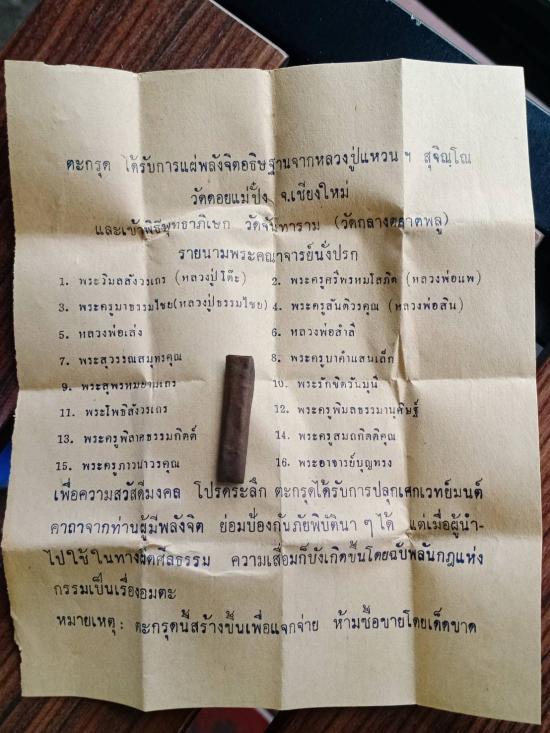 ตะกรุด ได้รับการแผ่พลังจิตอธิษฐานจากหลวงปู่แหวน ฯ สุจิณฺโณ
วัดดอยแม่ปั๋ง จ.เชียงใหม่
และเข้าพิธีพุทธาภิเษก วัดจันทาราม (วัดกลางตลาดพลู)
รายนามพระคณาจารย์นั่งปรก
1. พระวิมลสังวรเถร (หลวงปู่โต๊ะ) 2. พระครูศรีพรหมโสภิต (หลวงพ่อแพ)
3. พระครูบาธรรมไชย(หลวงปู่ธรรมไชย) 4. พระครูสันติวรคุณ (หลวงพ่อสิน)
5. หลวงพ่อเส่ง 6. หลวงพ่อสำลี
7. พระสุวรรณสมุทรคุณ 8. พระครูบาคำแสนเล็ก
9. พระสุพรหมยานเถร 10. พระรักขิตวันมุนี
11. พระโพธิสังวรเถร 12. พระครูพิมลธรรมานุศิษฐ์
13. พระครูพิลาศธรรมกิตติ์ 14. พระครูสมถกิตติคุณ
15. พระครูภาวนาวรคุณ 16. พระอาจารย์บุญทรง
เพื่อความสวัสดีมงคล โปรดระลึก ตะกรุดได้รับการปลุกเศกเวทย์มนต์
คาถาจากท่านผู้มีพลังจิต ย่อมป้องกันภัยพิบัตินา ๆ ได้ แต่เมื่อผู้นำ-
ไปใช้ในทางผิดศีลธรรม ความเสื่อมก็บังเกิดขึ้นโดยฉับพลันกฎแห่ง
กรรมเป็นเรื่องอมตะ
หมายเหตุ : ตะกรุดนี้สร้างขึ้นเพื่อแจกจ่าย ห้ามซื้อขายโดยเด็ดขาด